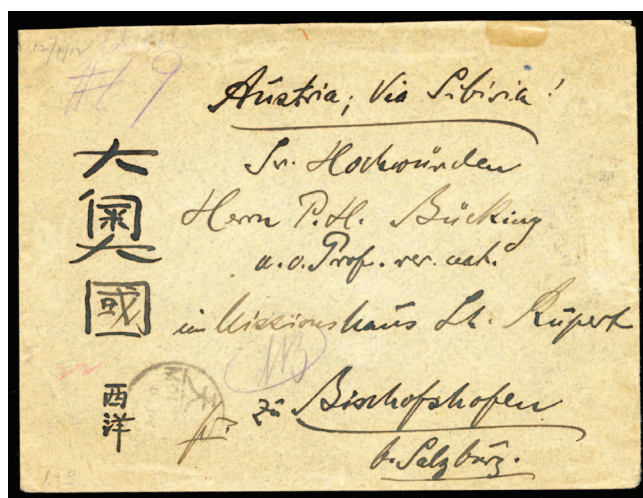 12/1/12
#69
Austria, via Sibiria!
Sr. Hochwürden
Herrn P. H. Bücking
a. o. Prof. rer. nat.
im Missionshaus St. Rupert
zu Bischofshofen
b. Salzburg.
大奧國
西洋
22